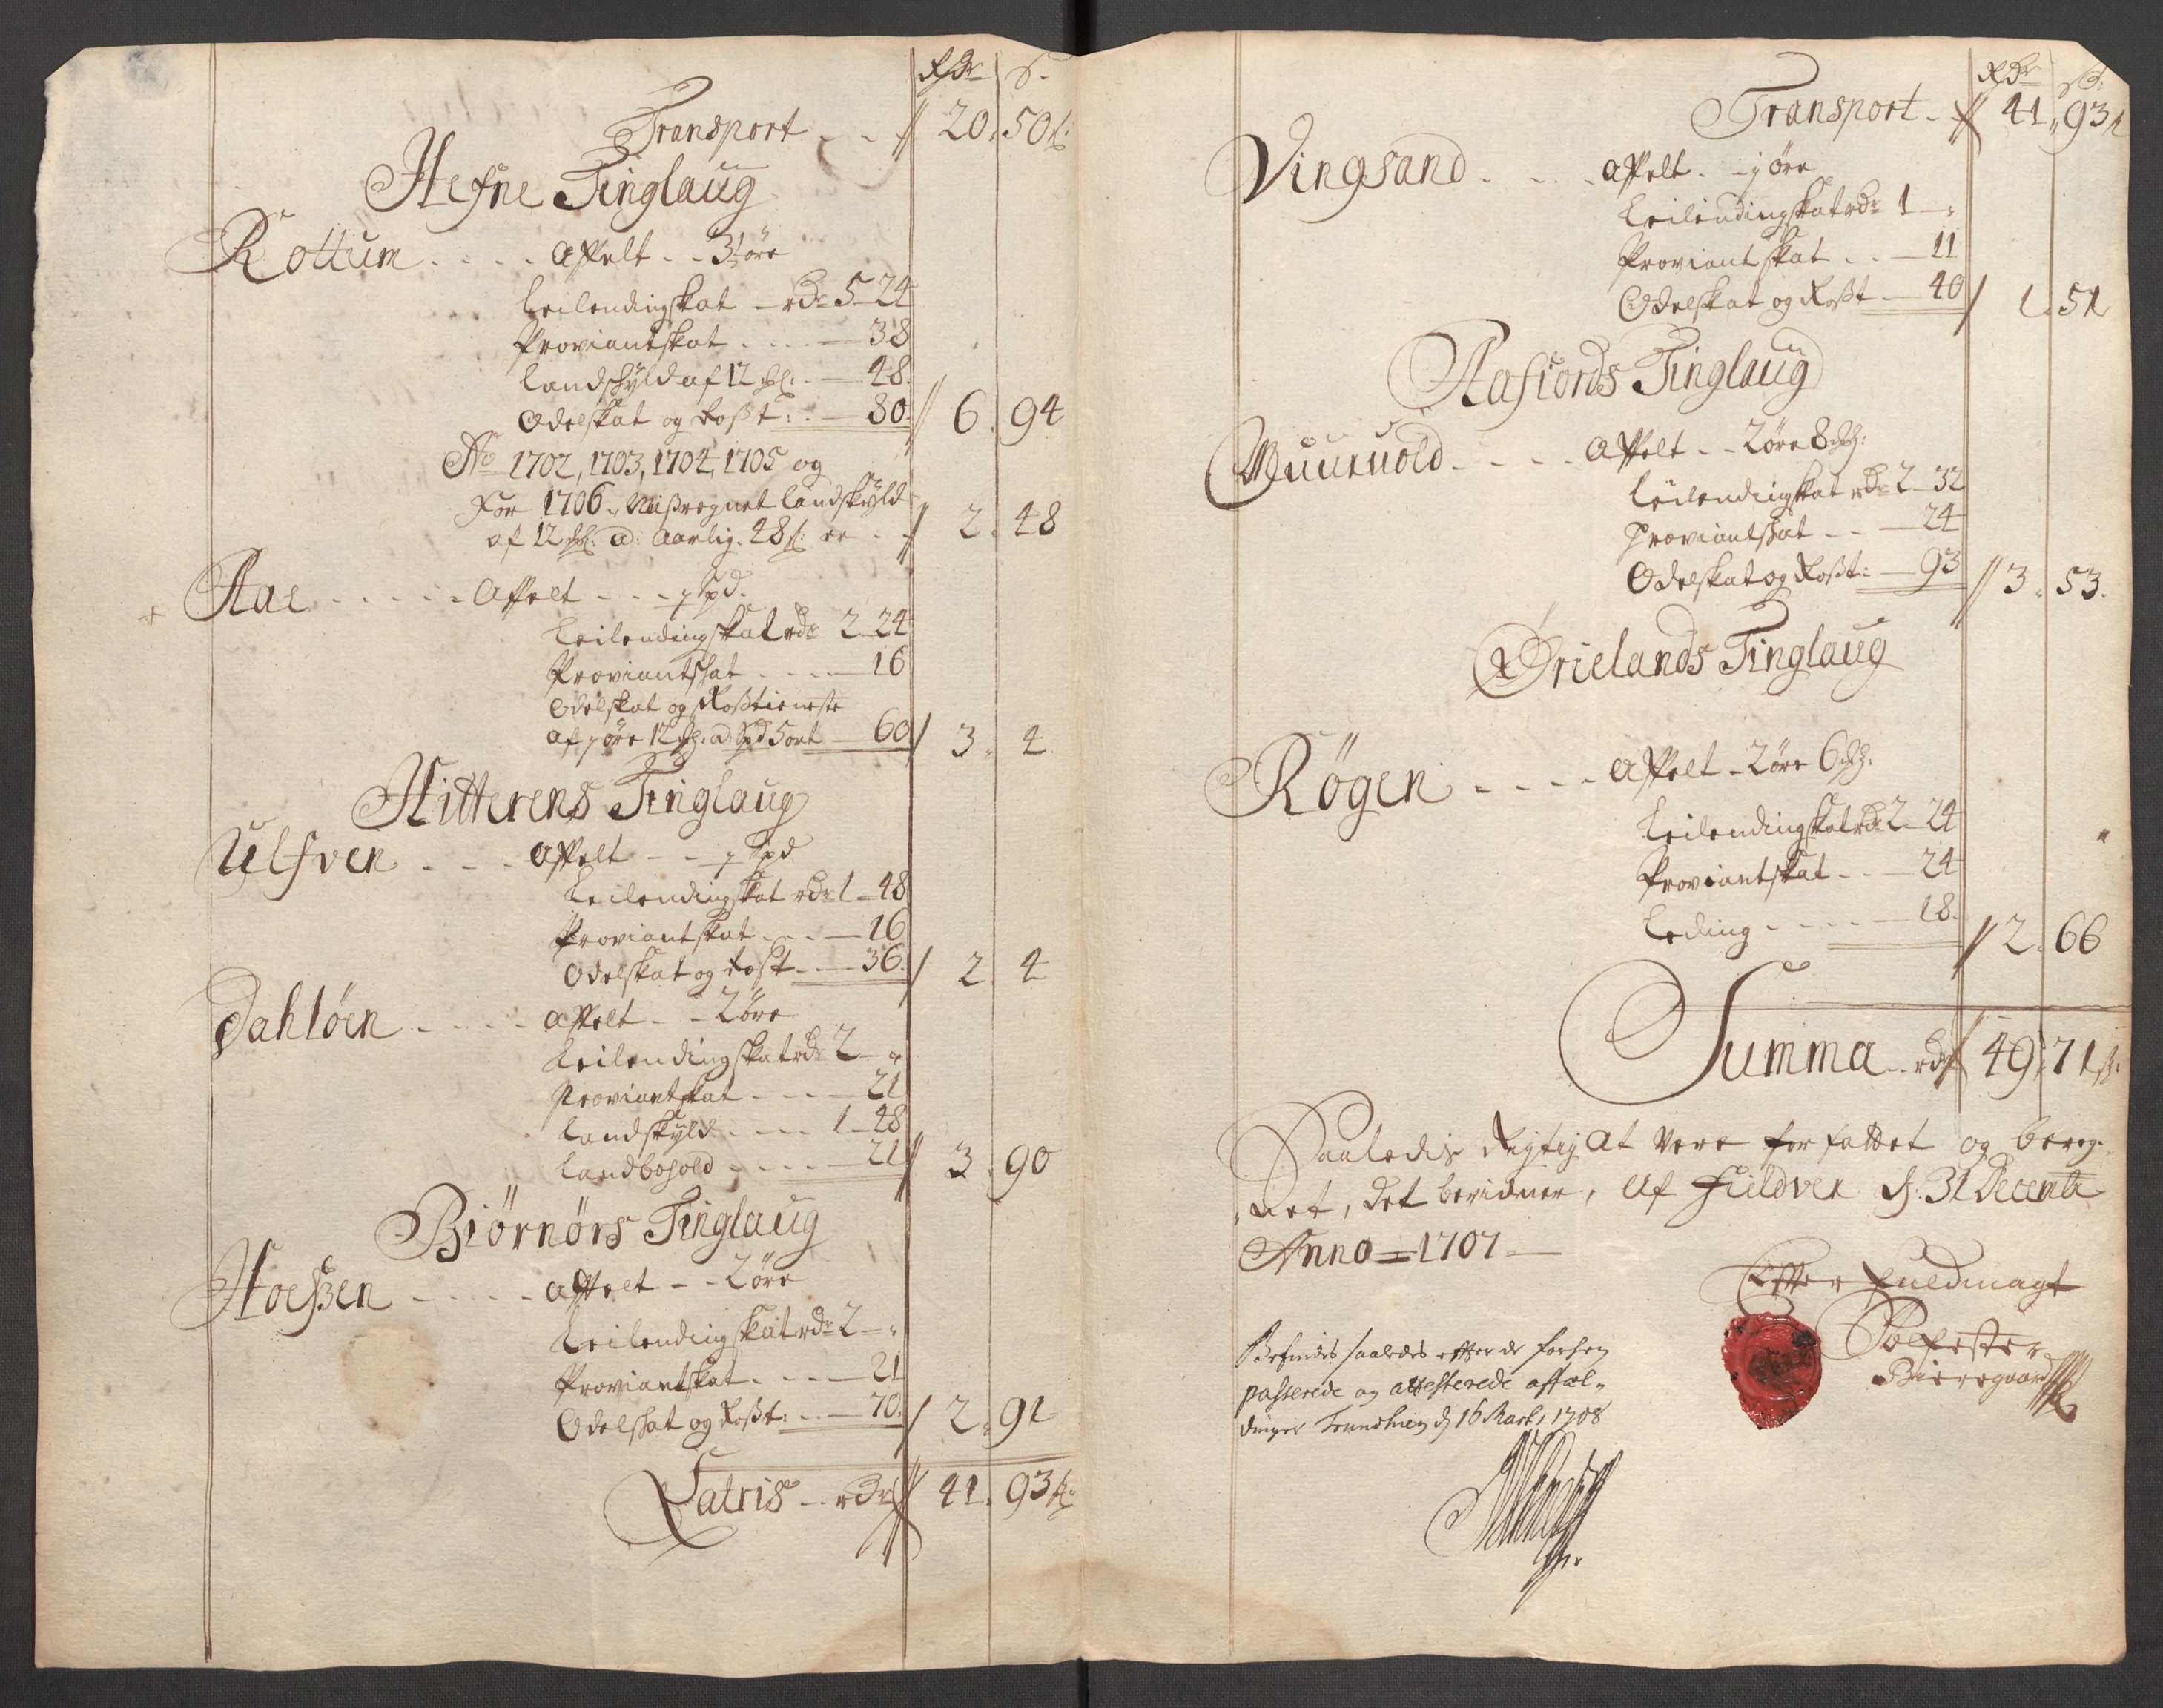 Rdr ß.
Transport - - 20. 50 ß:
Hefne Tinglaug
Rottum . . . . Affelt - - 3½ øre
Leilendingskat - rdr 5 - 24
Proviantskat . . . . - 38
Landskyld af 12 - 48.
Odelskat og Roßt: . - 80. 6. 94
Ao 1702, 1703, 1704, 1705 og
For 1706. Misregnet landskyld
af 12 a: Aarlig. 48 ß: er - 2. 48
Aae - - - - - Affelt - - - 1 Spd.
Leilendingskat rdr 2 - 24
Proviantskat . . . . - 16
Odelskat og Roßtieneste
af 1 øre 12 a Spd 5 ort - 60 3. 4
Hitterens Tinglaug
Ulfven - - - Affelt - - 1 Spd
Leilendingskat rdr 1 - 48
Proviantskat . . . - 16
Odelskat og Roßt - - 36. 2. 4
Dahløen - - - - Affelt - - 2 øre
Leilendingskat rdr 2 - "
Proviantskat - - - - 21
Landskyld - - - - 1 - 48
Landbohold - - - - 21 3. 90
Biørnørs Tinglaug
Hoeßen - - - - Affelt - - 2 øre
Leilendingskat rdr 2 - "
Proviantskat . . . - 21
Odelskat og Roßt: . . - 70. 2. 91
Latris - - rdr 41. 93 ß:
Rdr ß:
Transport - 41. 93 ß
Vingsand - - - - Affelt. - 1 øre
Leilendingskat rdr 1 - "
Proviantskat . . - 11
Odelskat og Roßt - 40 1. 51
Aafiords Tinglaug
Muuruold - - - - Affelt - - 2 øre 8
Leilendingskat rdr 2 - 32
Proviantskat - - - 24
Odelskat og Roßt: - 93 3. 53.
Ørielands Tinglaug
Røgen - - - - Affelt - 2 øre 6
Leilendingskat rdr 2 - 24
Proviantskat - - - 24
Leding - - - - - 18. 2. 66
Summa - rdr 49. 71 ß:
Saaledis Rigtig at Vere forfattet og bereg-
net, det bevidner, Af Fieldven d. 31 Decembr
Anno = 1707 -
Efter fuldmagt
Befindis saaledes efter de forhen
passerede og attesterede aftæl-
dinger Trundhiem d 16 Mart, 1708